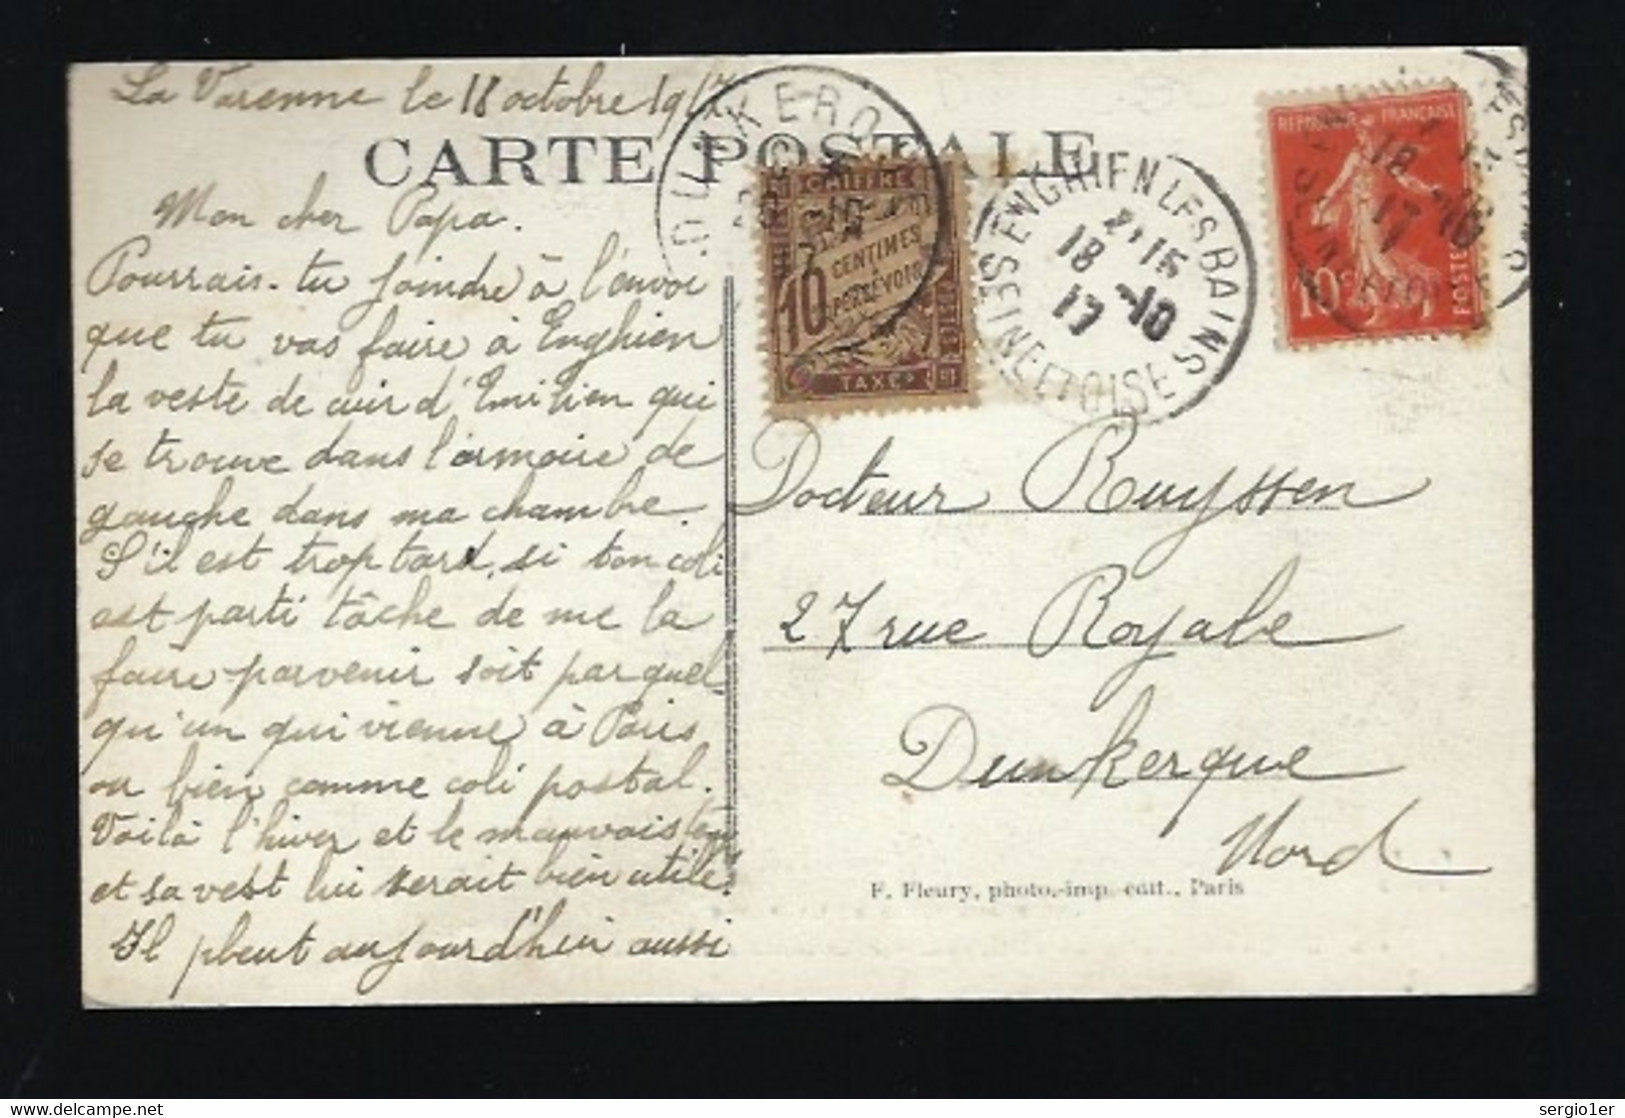 La Varenne le 18 octobre 1917
CARTE POSTALE
Mon cher Papa.
Pourrais-tu joindre à l'envoi
que tu vas faire à Enghien
la veste de cuir d'Emilien qui
se trouve dans l'armoire de
gauche dans ma chambre.
S'il est trop tard, si ton coli
est parti tâche de me la
faire parvenir soit par quel-
qu'un qui vienne à Paris
ou bien comme coli postal.
Voilà l'hiver et le mauvais temps
et sa vest lui serait bien utile.
Il pleut aujourd'hui aussi
DUNKERQUE
CHIFFRE
10
CENTIMES
A
PERCEVOIR
TAXE
POSTES
ENGHIEN LES BAINS
2*15
18 -10
17
SEINE ET OISE
REPUBLIQUE FRANÇAISE
10c
POSTES
18 -10
17
Docteur Ruyssen
27 rue Royale
Dunkerque
Nord
F. Fleury, photo.-imp. édit., Paris
sergio1er